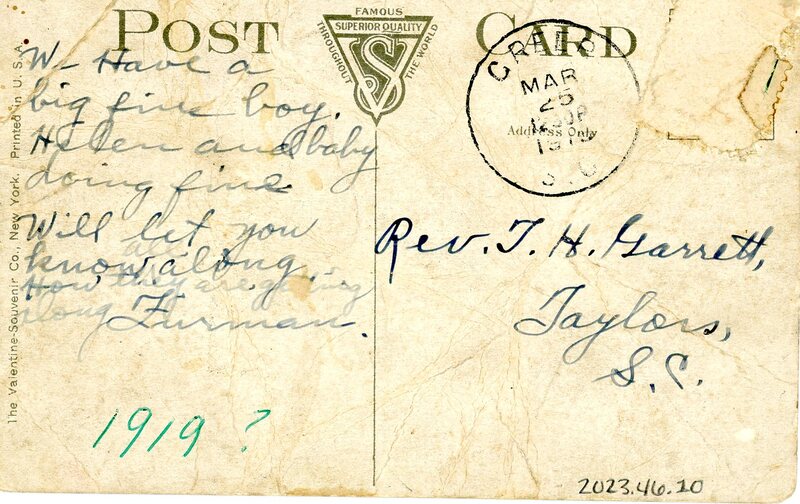 POST CARD
FAMOUS
SUPERIOR QUALITY
THROUGHOUT THE WORLD
VS
The Valentine-Souvenir Co., New York. Printed in U. S. A.
W- Have a
big fine boy.
Helen and baby
doing fine
Will let you
know along
How they are going
along Furman.
1919 ?
GREER
MAR
25
Address Only
S.C.
Rev. T. H. Garrett,
Taylors,
S.C.
2023.46.10